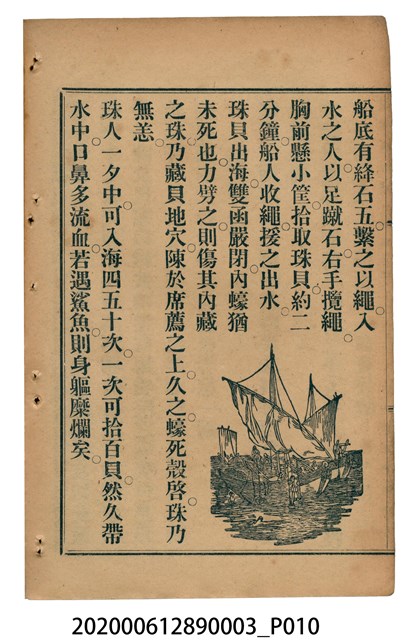 船底有絳石五繫之以繩入
水之人以足蹴石右手攬繩
胸前懸小筐拾取珠貝約二
分鐘船人收繩援之出水
珠貝出海雙函嚴閉內蠔猶
未死也力劈之則傷其內藏
之珠乃藏貝地穴陳於席薦之上久之蠔死殼啓珠乃
無恙
珠人一夕中可入海四五十次一次可拾百貝然久帶
水中口鼻多流血若遇鯊魚則身軀糜爛矣
202000612890003_P010